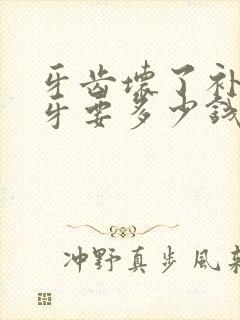 牙齿坏了补
牙要多少钱
冲野真步风